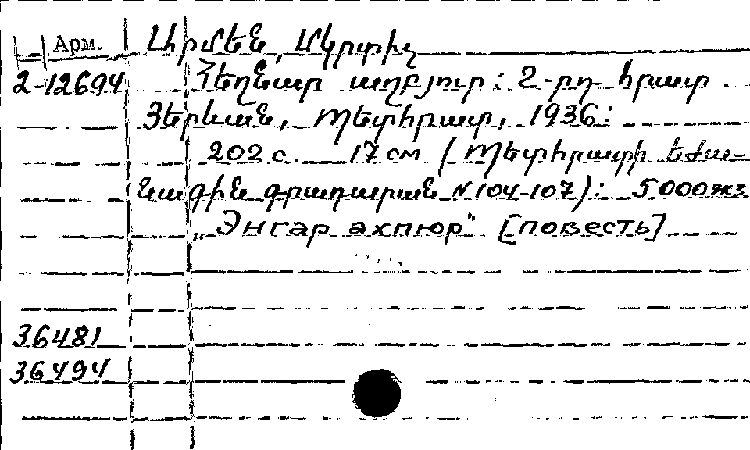 Арм. Արմեն, Մկրտիչ
2-12694 Հեղնար աղբյուր: 2-րդ հրատ.
Յերեվան, Պետհրատ, 1936:
202 с. 17 см (Պետհրատի եժա-
նագին գրադարան № 104-107): 5000 экз
„Энгар ахпюр" [повесть]
36481
36494